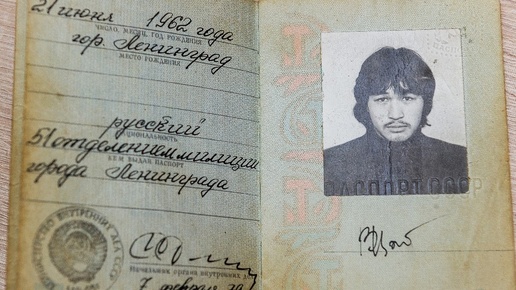 21 июня 1962 года
ЧИСЛО, МЕСЯЦ, ГОД РОЖДЕНИЯ
гор. Ленинград
МЕСТО РОЖДЕНИЯ
русский
НАЦИОНАЛЬНОСТЬ
51 отделением милиции
КЕМ ВЫДАН ПАСПОРТ
города Ленинграда
МИНИСТЕРСТВО ВНУТРЕННИХ ДЕЛ СССР
Начальник органа внутренних
7 февраля
ПАСПОРТ СССР